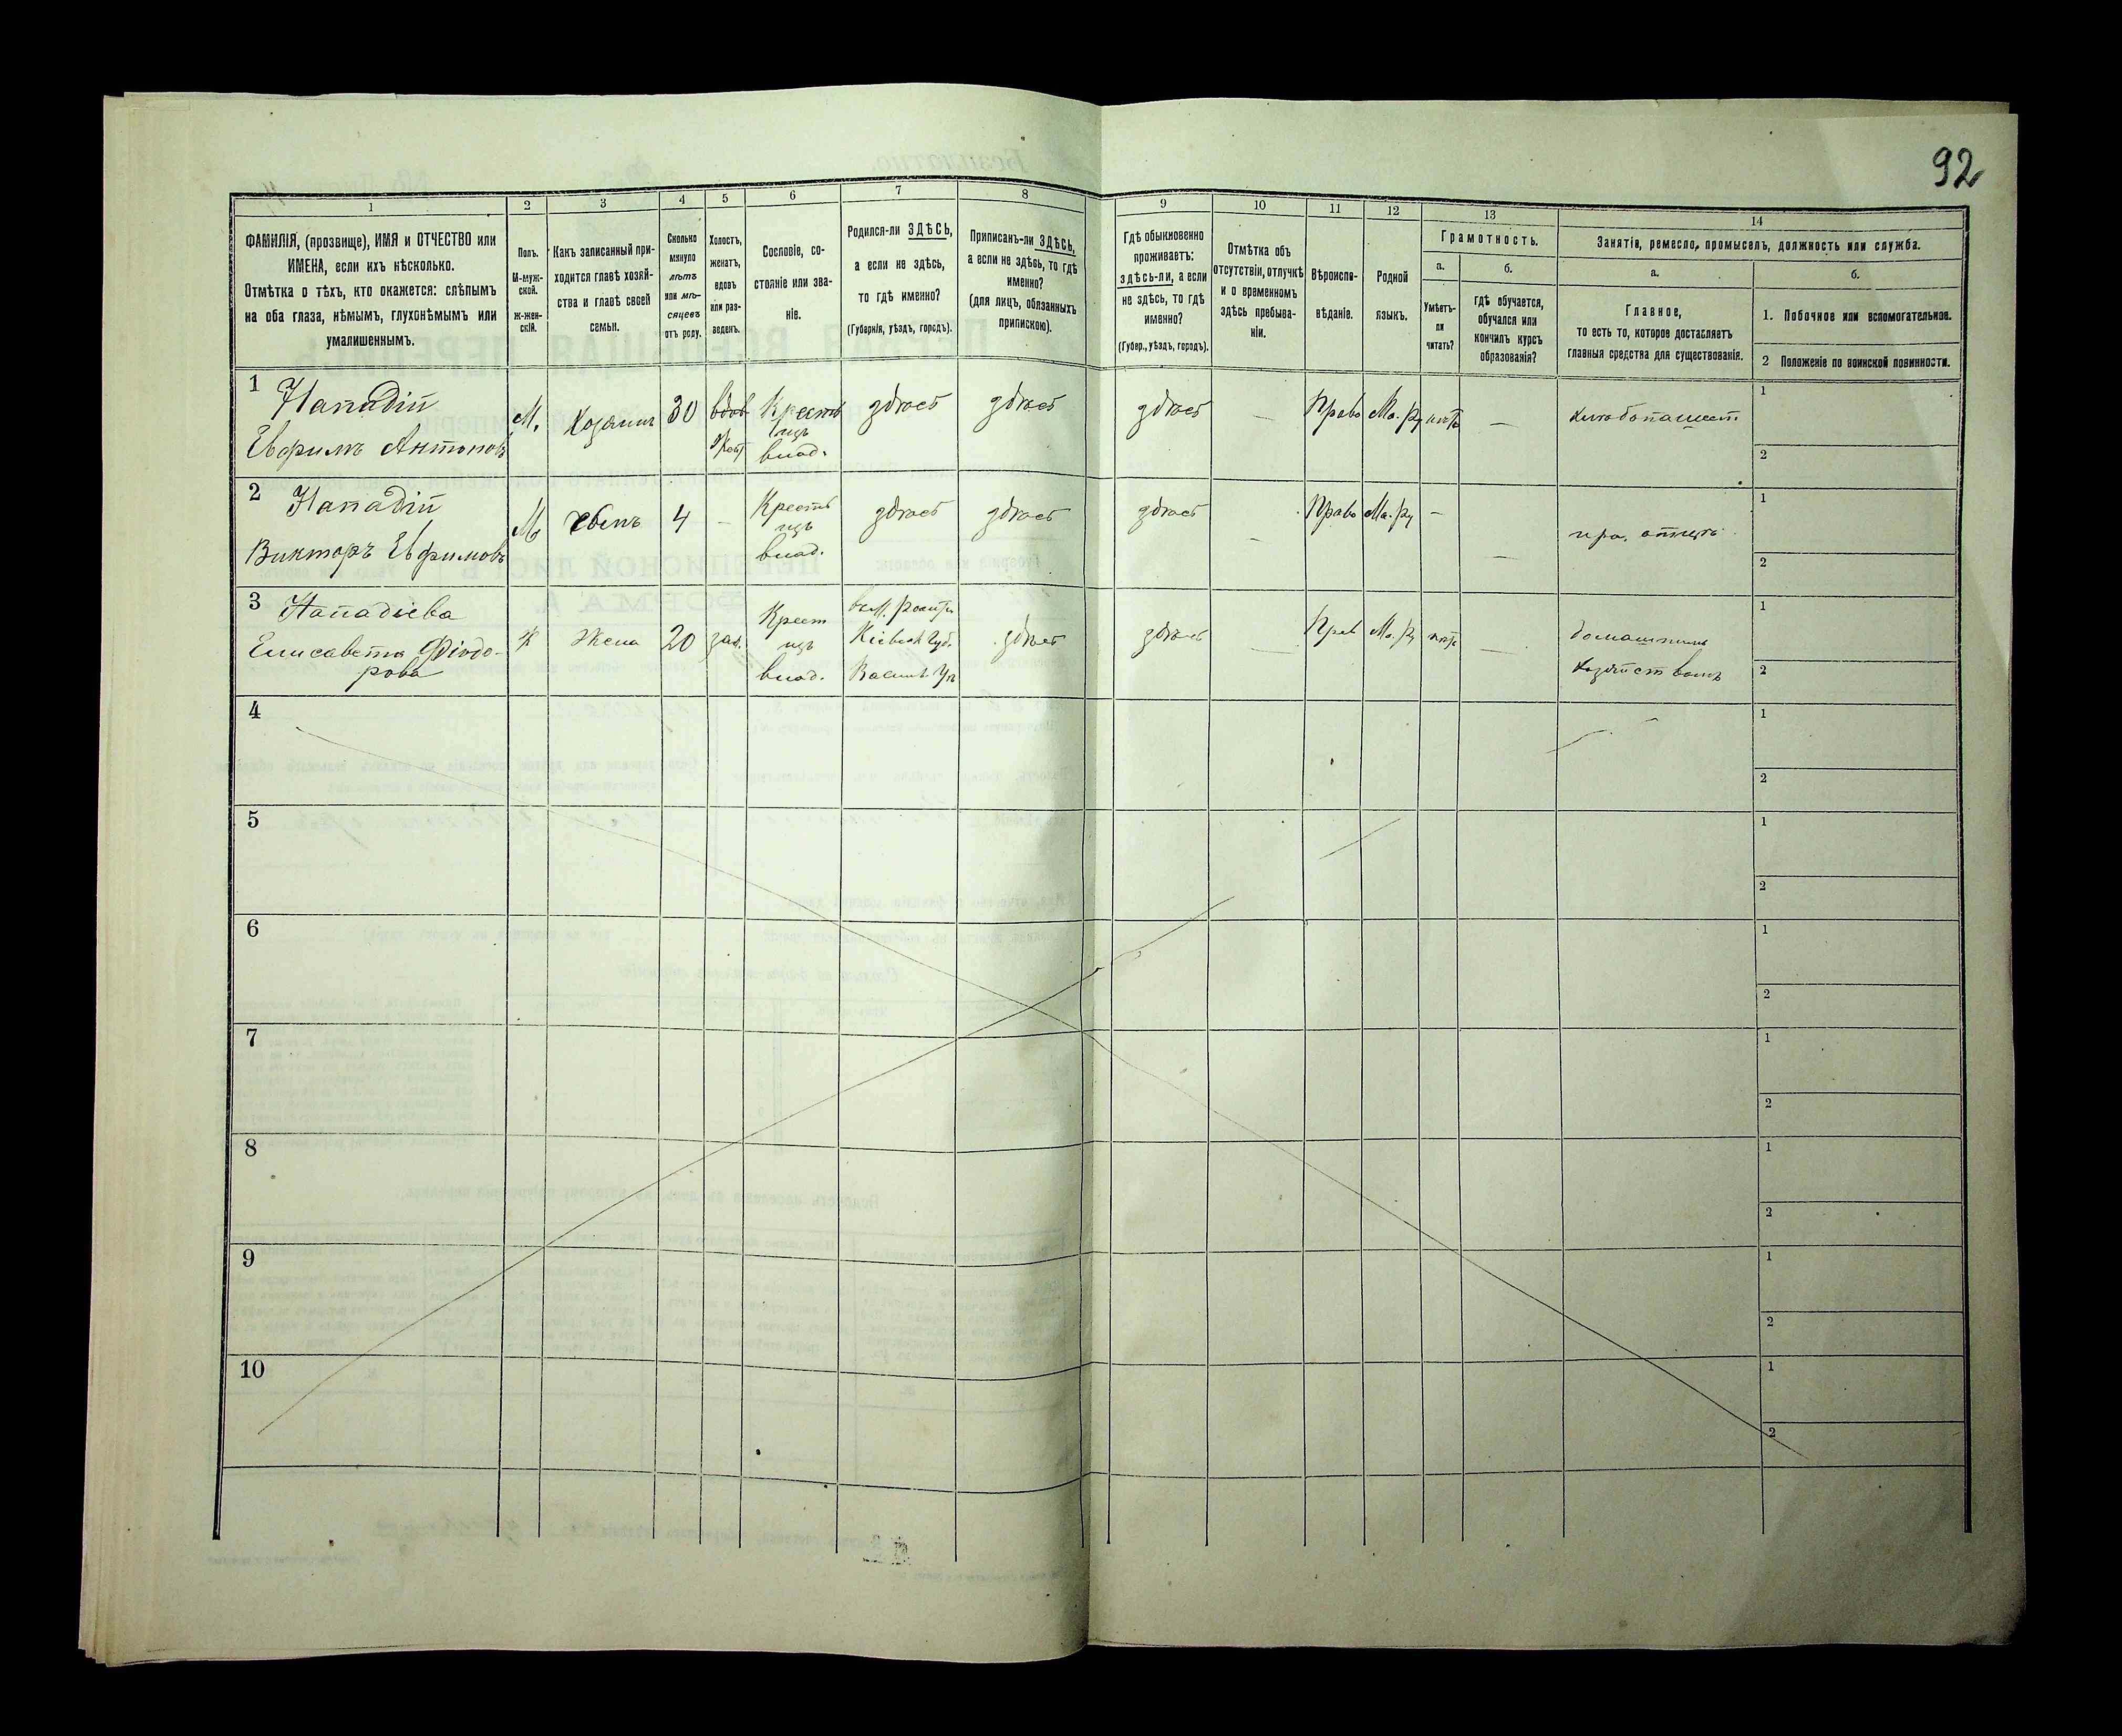 92
1
2
3
4
5
6
7
8
9
10
11
12
13
14
ФАМИЛІЯ, (прозвище), ИМЯ и ОТЧЕСТВО или
ИМЕНА, если ихъ нѣсколько.
Отмѣтка о тѣхъ, кто окажется: слѣпымъ
на оба глаза, нѣмымъ, глухонѣмымъ или
умалишеннымъ.
Полъ.
М-муж-
ской.
ж-жен-
скій.
Какъ записанный при-
ходится главѣ хозяй-
ства и главѣ своей
семьи.
Сколько
минуло
лѣтъ
или мѣ-
сяцевъ
отъ роду.
Холостъ,
женатъ,
вдовъ
или раз-
веденъ.
Сословіе, со-
стояніе или зва-
ніе.
Родился-ли ЗДѢСЬ,
а если не здѣсь,
то гдѣ именно?
(Губернія, уѣздъ, городъ).
Приписанъ-ли ЗДѢСЬ,
а если не здѣсь, то гдѣ
именно?
(для лицъ, обязанныхъ
припискою).
Гдѣ обыкновенно
проживаетъ:
здѣсь-ли, а если
не здѣсь, то гдѣ
именно?
(Губер., уѣздъ, городъ).
Отмѣтка объ
отсутствіи, отлучкѣ
и о временномъ
здѣсь пребыва-
ніи.
Вѣроиспо-
вѣданіе.
Родной
языкъ.
Грамотность.
а.
Умѣетъ-
ли
читать?
б.
гдѣ обучается,
обучался или
кончилъ курсъ
образованія?
Занятіе, ремесло, промыселъ, должность или служба.
а.
Главное,
то есть то, которое доставляетъ
главныя средства для существованія.
б.
1. Побочное или вспомогательное.
2 Положеніе по воинской повинности.
1
Нападій
Евфимъ Антоновъ
М.
Хозяинъ
30
вдов
Крестъ
изъ
влад.
здѣсь
здѣсь
здѣсь
—
Право
Ма. Ру
нѣтъ
—
хлѣбопашест
1
2
2
Нападій
Викторъ Евфимовъ
М
сынъ
4
—
Крестъ
изъ
влад.
здѣсь
здѣсь
здѣсь
—
Право
Ма. Ру
—
—
при. отцѣ
1
2
3
Нападіева
Елисавета Ѳіодо-
рова
Ж
Жена
20
зам.
Крест
изъ
влад.
Кіевск Губ.
Васильк. Уѣ
здѣсь
здѣсь
—
Прав
Ма. Ру
нѣтъ
—
домашнимъ
хозяйствомъ
1
2
4
1
2
5
1
2
6
1
2
7
1
2
8
1
2
9
1
2
10
1
2